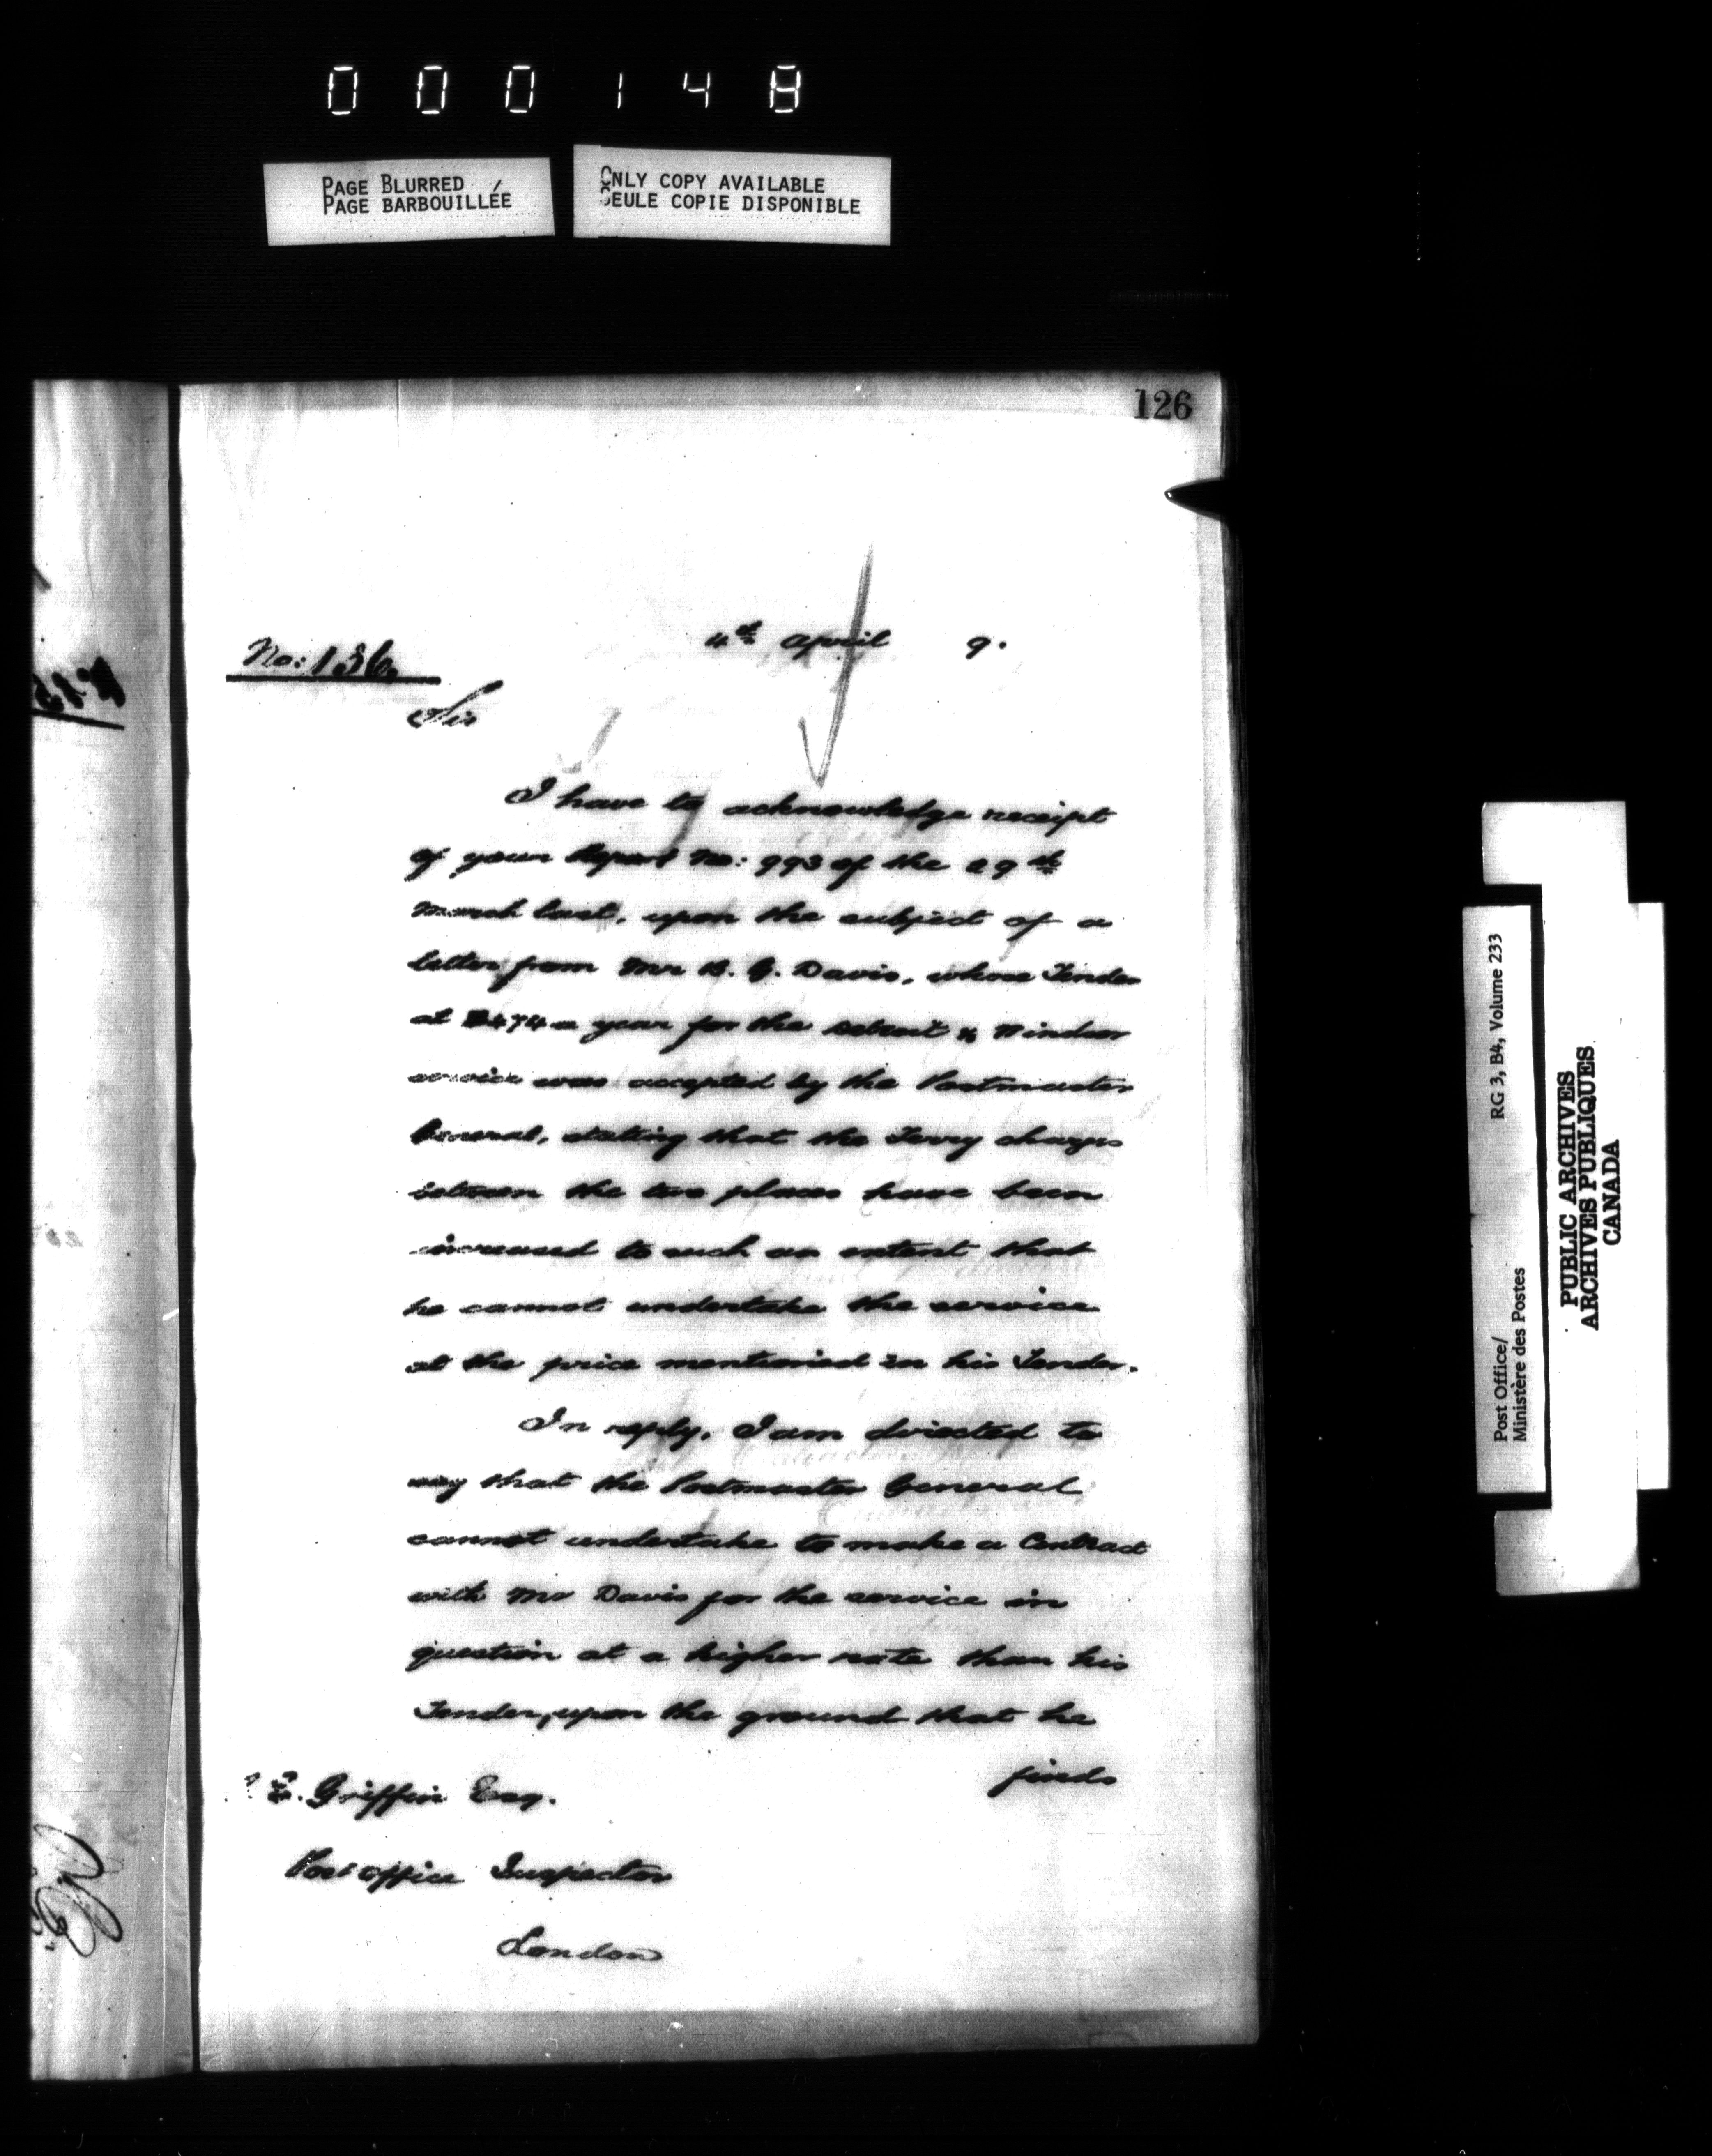 000148
PAGE BLURRED
PAGE BARBOUILLÉE
ONLY COPY AVAILABLE
SEULE COPIE DISPONIBLE
126
4th April 9.
No: 136
Sir
I have to acknowledge receipt
of your Report No: 993 of the 29th
March last, upon the subject of a
letter from Mr B. G. Davis, whose Tender
at $474 a year for the Detroit & Windsor
service was accepted by the Postmaster
General, stating that the Ferry charges
between the two places have been
increased to such an extent that
he cannot undertake the service
at the price mentioned in his Tender.
In reply, I am directed to
say that the Postmaster General
cannot undertake to make a Contract
with Mr Davis for the service in
question at a higher rate than his
Tender, upon the ground that he
finds
E. Griffin Esq.
Post Office Inspector
London
Post Office/
Ministère des Postes
RG 3, B4, Volume 233
PUBLIC ARCHIVES
ARCHIVES PUBLIQUES
CANADA